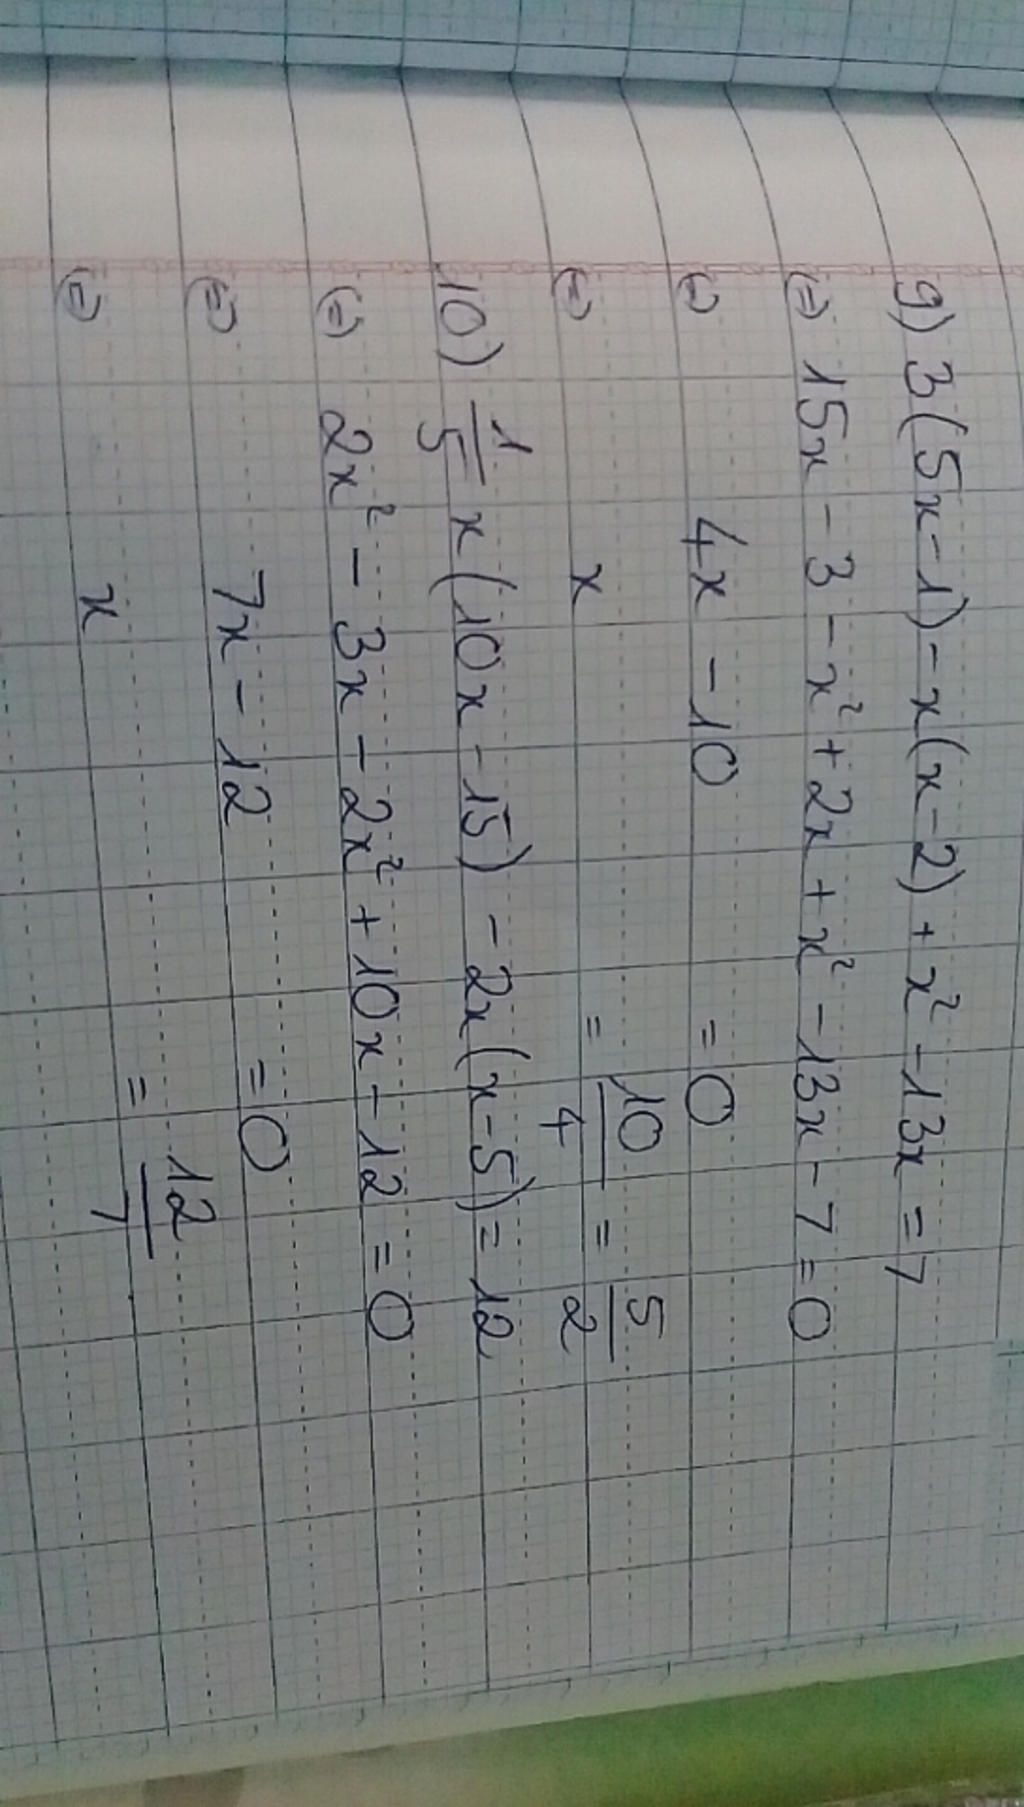 9) 3(5x-1)-x(x-2)+x²-13x=7
(=) 15x-3-x²+2x+x²-13x-7=0
(=) 4x-10 =0
(=) x = 10/4 = 5/2
10) 1/5 x(10x-15)-2x(x-5)=12
(=) 2x²-3x-2x²+10x-12=0
(=) 7x-12 =0
(=) x = 12/7